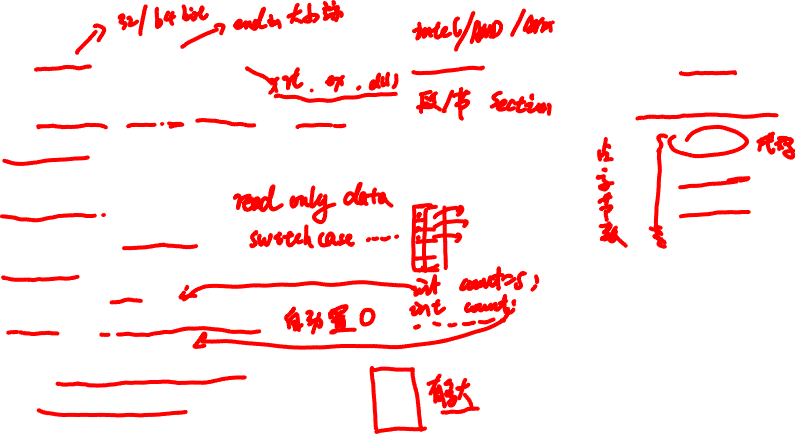 32/64 bit
endian 大小端
Intel/AMD/ARM
段/节 Section
代码
read only data
switch case ......
int count=5;
int count;
自动置0
有多大